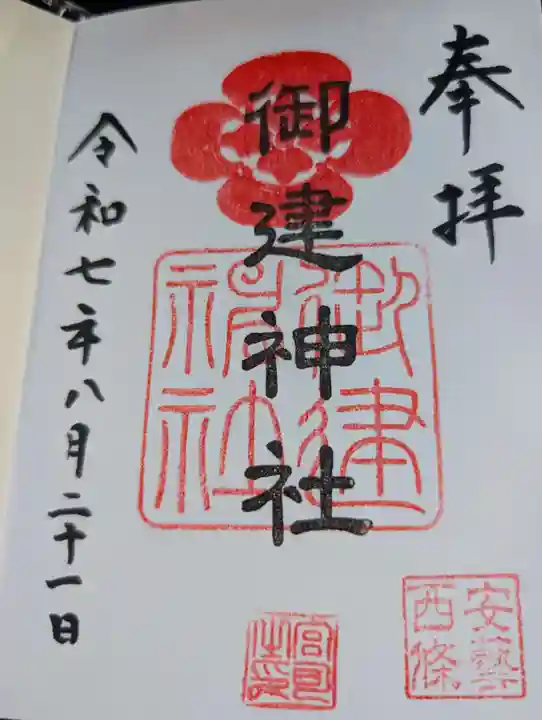 奉拝
御建神社
御建
神社
安藝
西條
宮司
之印
令和七年八月二十一日